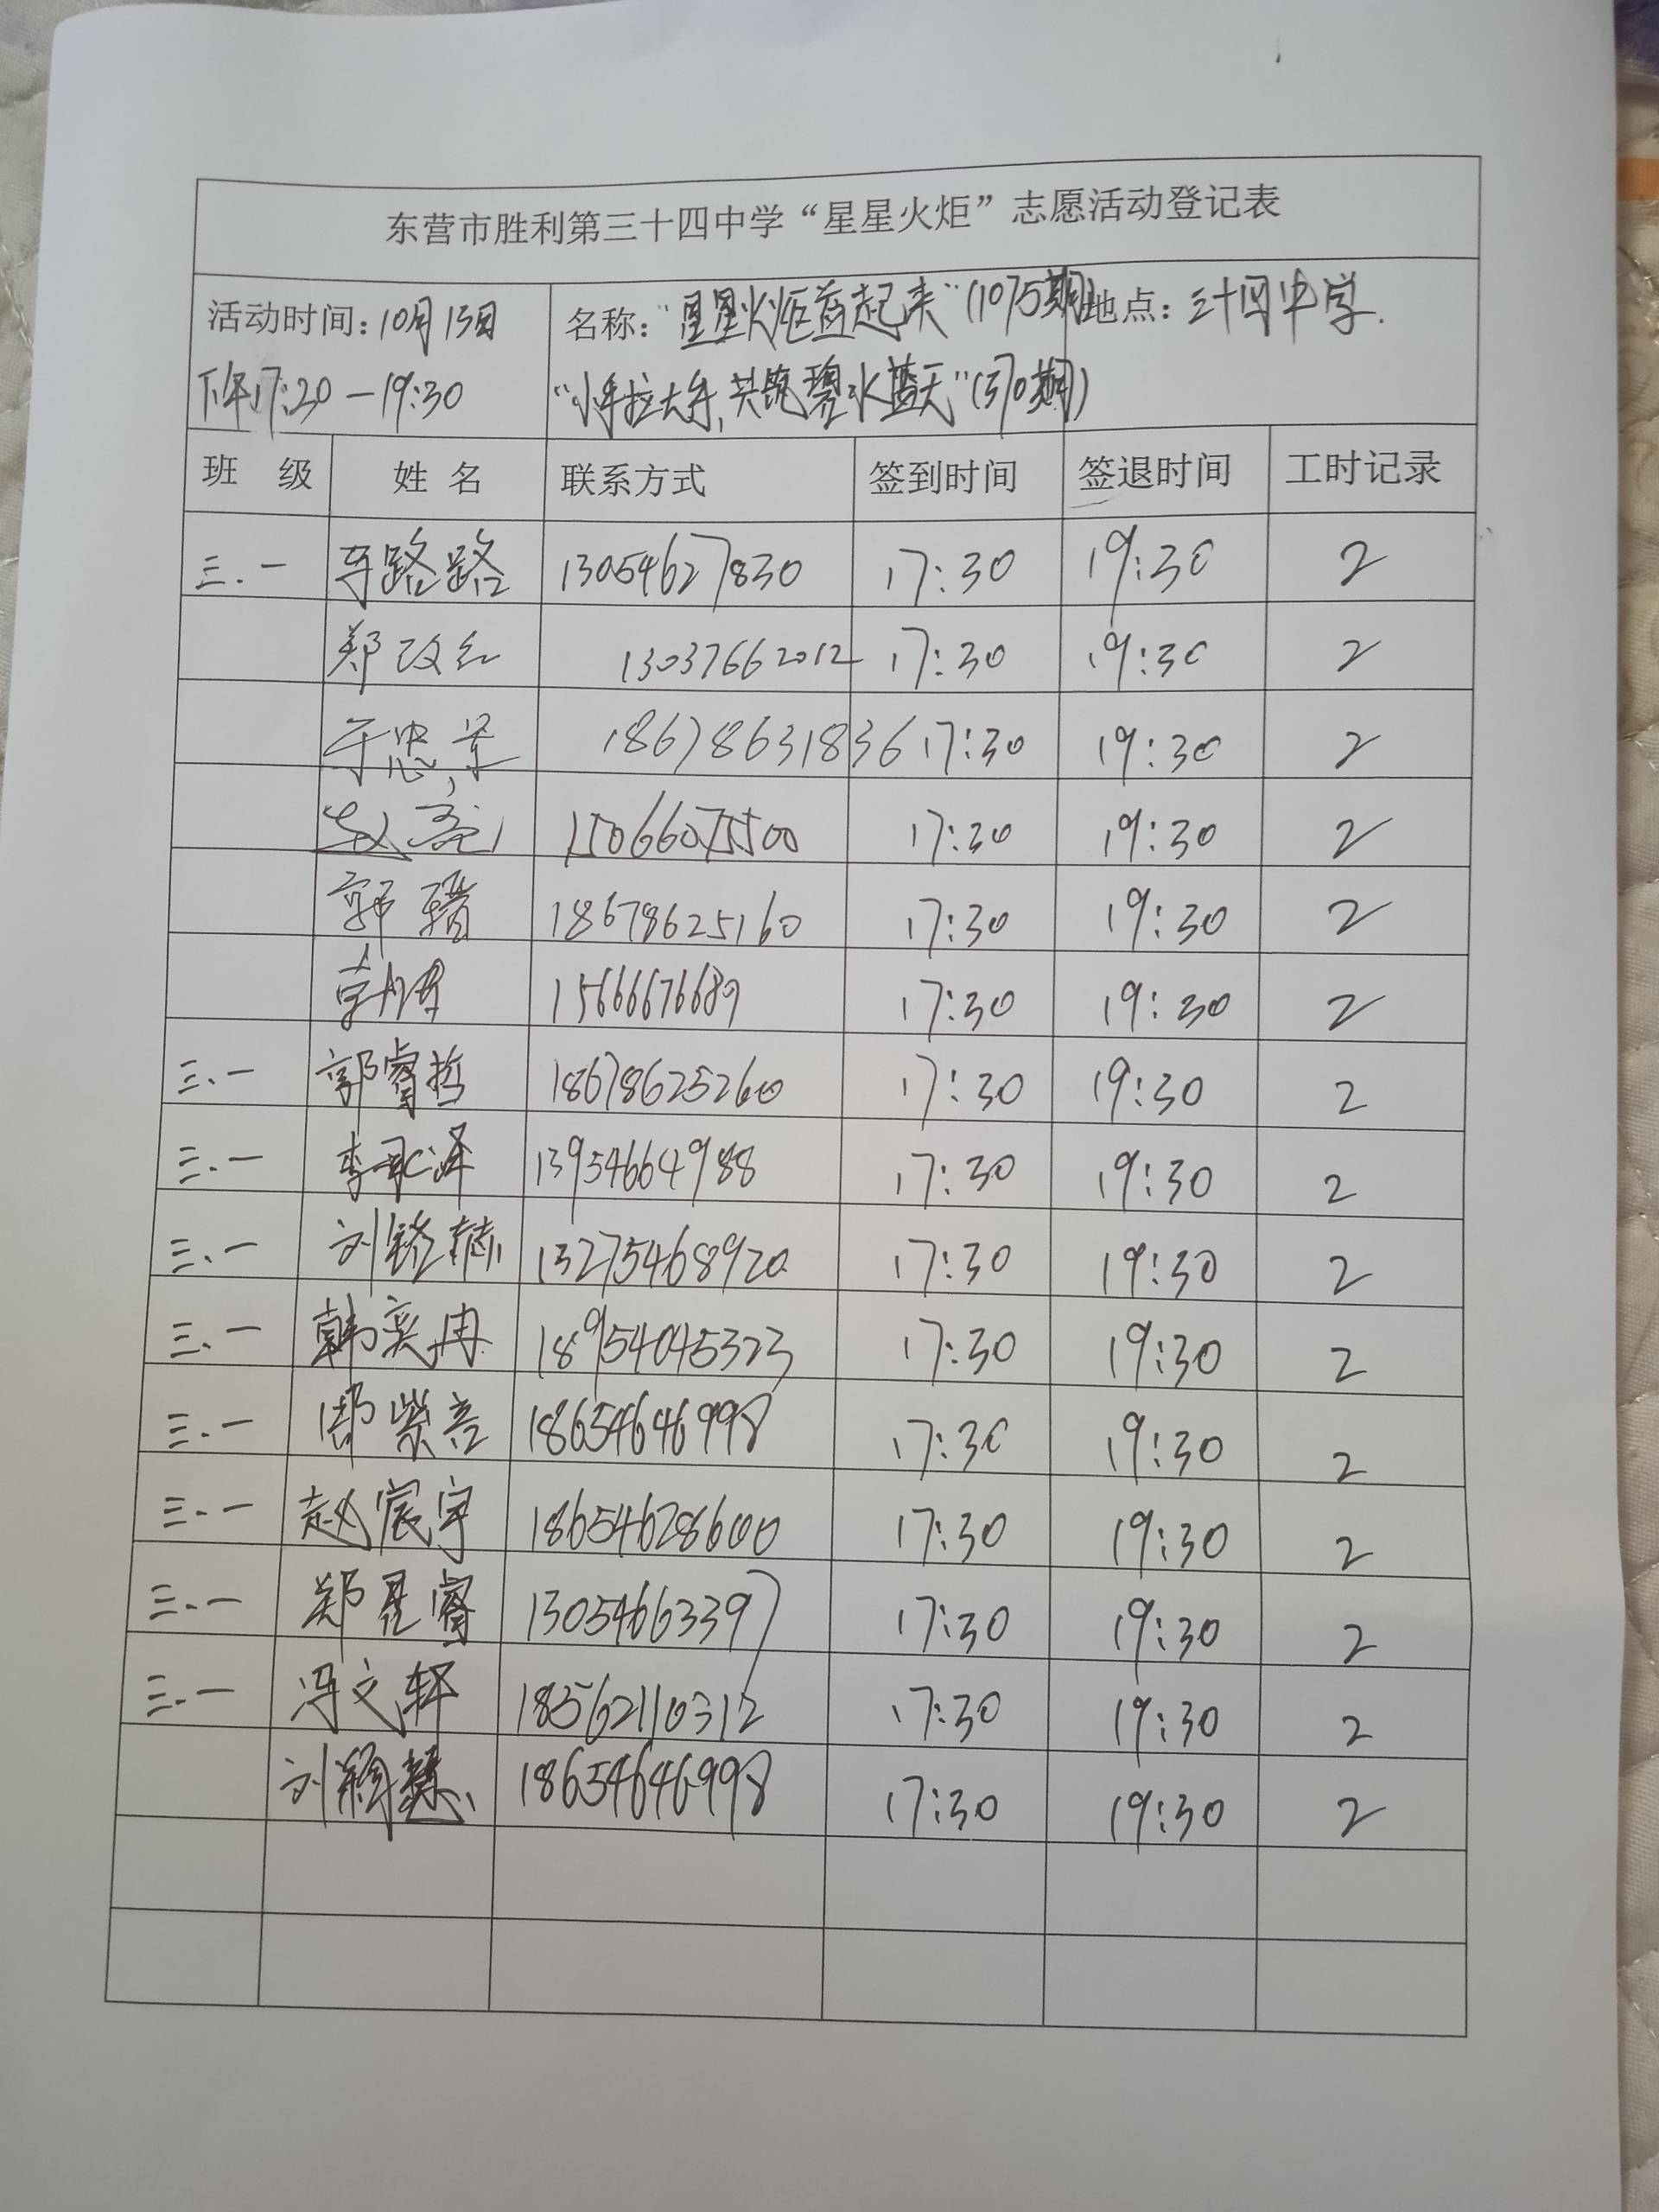 东营市胜利第三十四中学“星星火炬”志愿活动登记表
活动时间：10月13日 名称：“星星火炬益起来”(1075期) 地点：三十四中学.
下午17:20—19:30 “小手拉大手,共筑碧水蓝天”(370期)
班 级 姓 名 联系方式 签到时间 签退时间 工时记录
三.一 路路 13054627830 17:30 19:30 2
郑改红 13037662012 17:30 19:30 2
于忠 18678631836 17:30 19:30 2
赵亮 15066075500 17:30 19:30 2
郭 18678625160 17:30 19:30 2
15666676689 17:30 19:30 2
三.一 郭睿哲 18678625260 17:30 19:30 2
三.一 李承泽 13954664988 17:30 19:30 2
三.一 刘 13275468920 17:30 19:30 2
三.一 韩奕冉 18954045323 17:30 19:30 2
三.一 紫 18654646998 17:30 19:30 2
三.一 赵宸宇 18654628600 17:30 19:30 2
三.一 郑星睿 13054663397 17:30 19:30 2
三.一 冯文轩 18562110312 17:30 19:30 2
刘 慧 18654646998 17:30 19:30 2